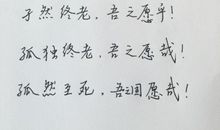 孑然终老，吾之愿乎！
孤独终老，吾之愿哉！
孤然至死，吾之固愿哉！